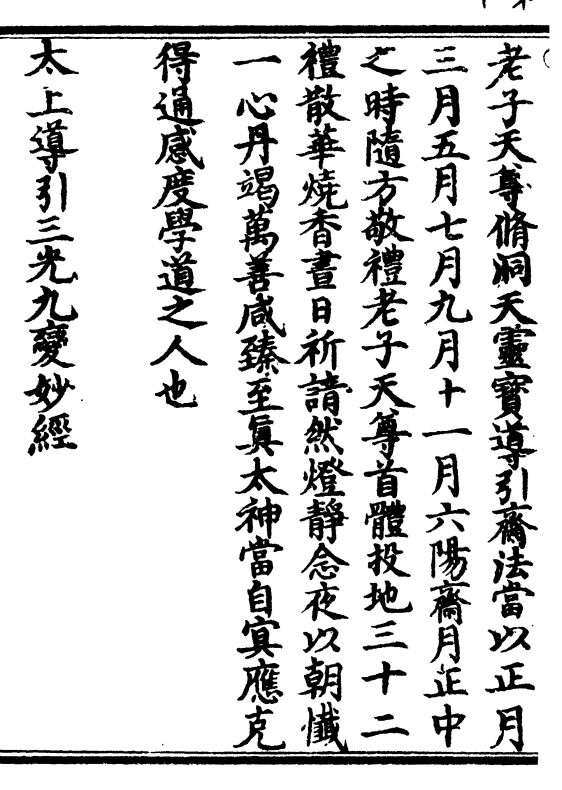 老子天尊脩洞天靈寳導引齋法當以正月
三月五月七月九月十一月六陽齋月正中
之時隨方敬禮老子天尊首體投地三十二
禮散華燒香晝日祈請然燈靜念夜以朝懺
一心丹竭萬善咸臻至眞太神當自㝠應克
得通感度學道之人也
太上導引三光九變妙經